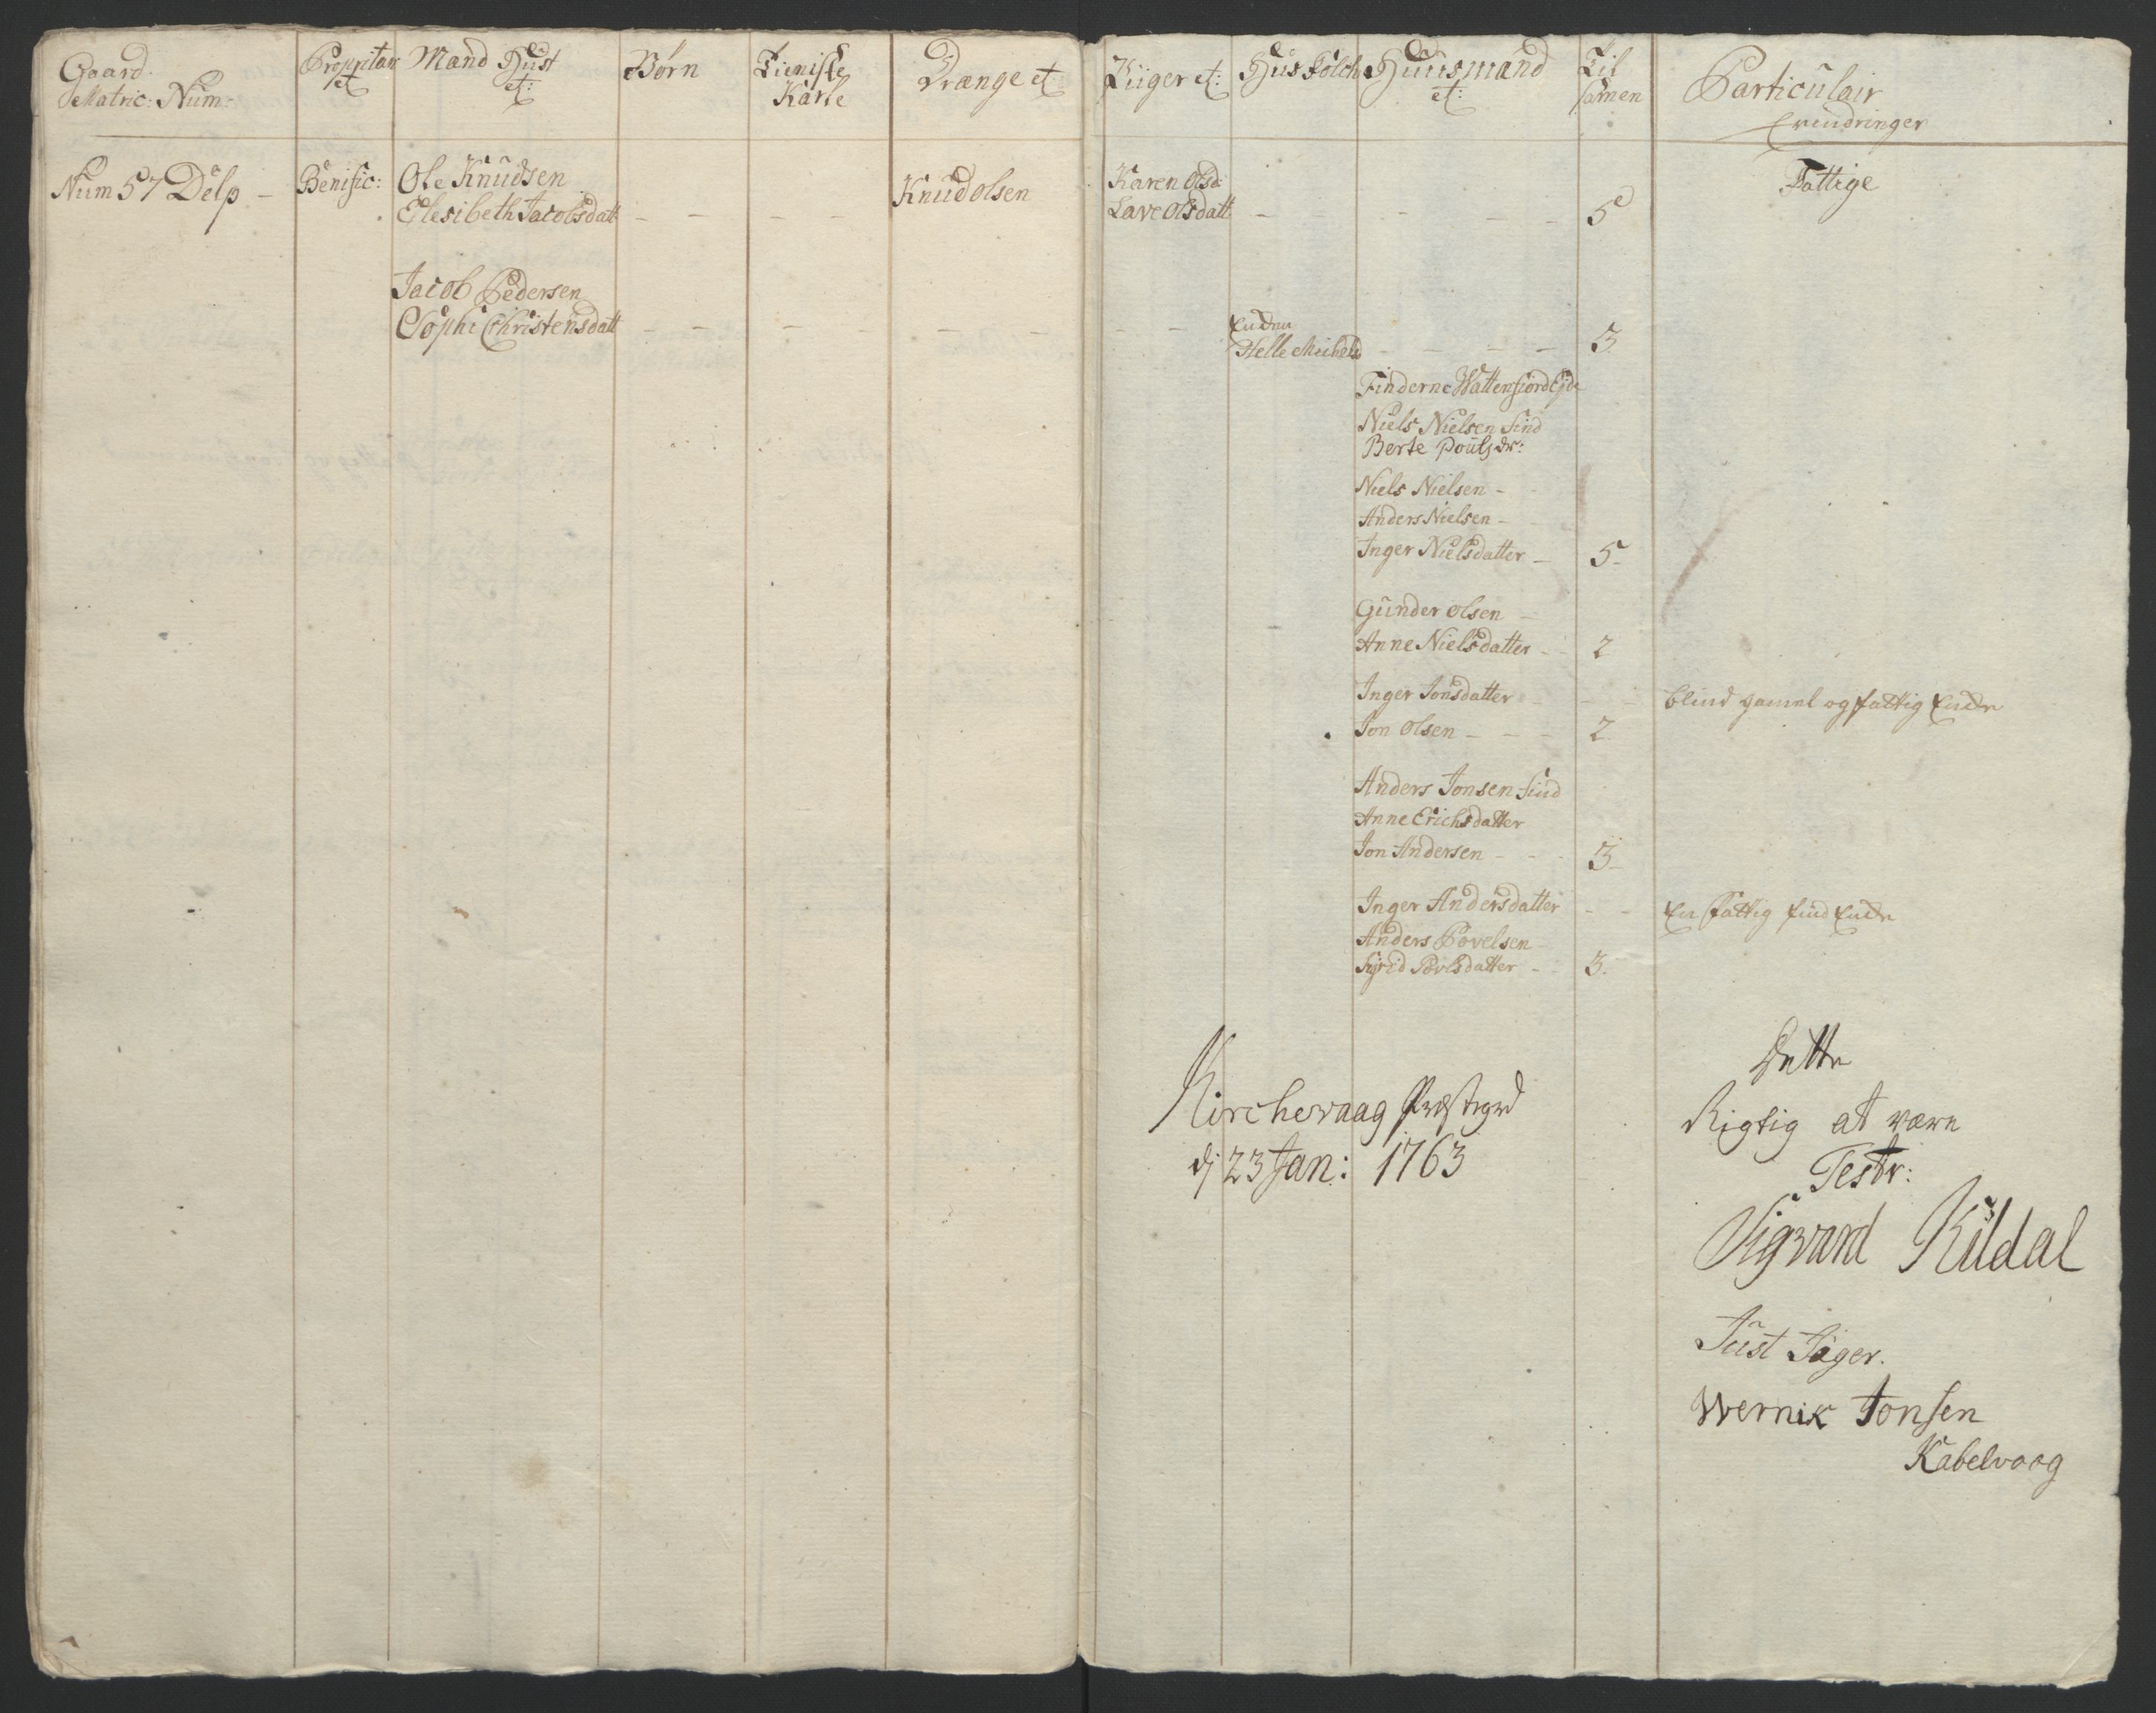 Gaard
Matric: Num:
Propritair
et
Mand Hust
et:
Børn
Tieniste
Karle
Drænge et
Piiger et:
Hus Folch
Huusmænd
et:
Til
samen
Particulair
Erindringer
Num 57 Delp -
Benific:
Ole Knudsen
Elesibeth Jacobsdatt
Knud olsen
Karen Olsd:
Lave Olsdatt
5
Fattige
Jacob Pedersen
Sophi Christensdatt
Encken
Helle Michelsd
3
Finderne Wattenfiord Ejde
Niels Nielsen Find
Berte Pouls dr:
Niels Nielsen -
Anders Nielsen -
Inger Nielsdatter -
5
Gunder Olsen -
Anne Nielsdatter -
2
Inger Jonsdatter
blind gamel og fattig Encke
Jon Olsen -
2
Anders Jonsen Find
Anne Erichsdatter
Jon Andersen -
3
Inger Andersdatter
En Fattig find Encke
Anders Povelsen
Sigrid Povlsdatter -
3.
Kirchevaag Præstegrd
dj 23 Jan: 1763
Dette
Rigtig at være
Testr:
Sigvard Kildal
Just Jäger.
Wernik Jonsen
Kabelvaag